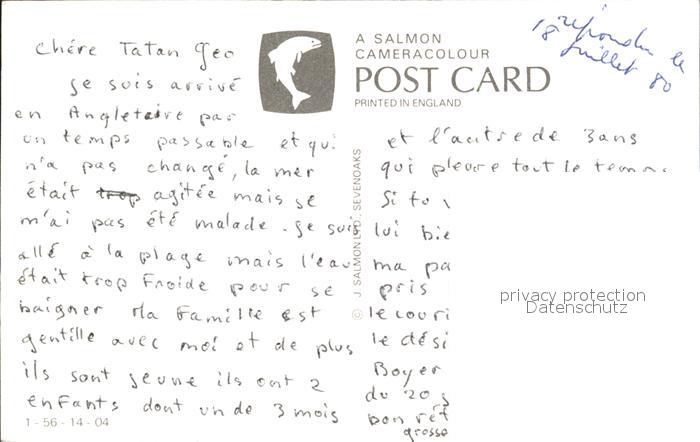 répondu le
18 Juillet 80
A SALMON
CAMERACOLOUR
POST CARD
PRINTED IN ENGLAND
Chére Tatan Geo
Je suis arrivé
en Angletaire par
un temps passable et qui
n'a pas changé, la mer
était trop agitée mais je
m'ai pas été malade. Je suis
allé à la plage mais l'eau
était trop Froide pour se
baigner Ma Famille est
gentille avec moi et de plus
ils sont jeune ils ont 2
enfants dont un de 3 mois
et l'autre de 3ans
qui pleure tout le temps
Si tu
lui bie
ma pa
pris
le couri
le dési
Boyer
du 20 j
bon rét
grosse
© J. SALMON LTD., SEVENOAKS
1-56-14-04
privacy protection
Datenschutz